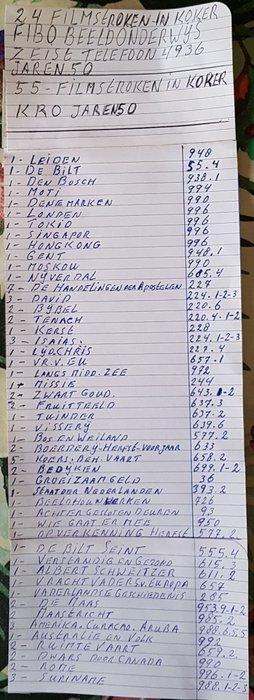 24 FILMSTROKEN IN KOKER
FIBO BEELDONDERWYS
ZEIST TELEFOON 4936
JAREN 50
55 - FILMSTROKEN IN KOKER
KRO JAREN 50
1 - LEIDEN 948
1 - DE BILT 55.4
1 - DEN BOSCH 938.1
1 - MOTI 994
1 - DENEMARKEN 990
1 - LONDEN 996
1 - TOKIO 996
1 - SINGAPOR 996
1 - HONGKONG 996
1 - GENT 948.1
1 - MOSKOW 990
1 - NYVERDAL 605.4
2 - DE HANDELINGEN DER APOSTELEN 227
3 - DAVID 224.1-2-3
2 - BYBEL 220.6
2 - TENACH 220.4.1-2
1 - KERST 228
3 - ISAIAS. 224.1-2-3
1 - LYDCHRIS 227.4
1 - VR.V.GU 657.1
1 - LANGS MIDD. ZEE 992
1 - MISSIE 244
2 - ZWART GOUD. 643.1-2
2 - FRUITTEELD 637.3
1 - TUINDER 637.2
1 - VISSERY 639.6
1 - BOS EN WEILAND 577.2
2 - BOERDERY-HERFST-VOORJAAR 633
5 - KOERS. BEH. VAART 658.2
2 - BEDYKEN 699.1-2
1 - GROEIZAAM GELD 36
1 - STAAT DER NEDERLANDEN 393.2
1 - BEELDHOUWWERKEN 726
1 - ACHTER GESLOTEN DEUREN 93
1 - WIE GAAT ER MEE 950
1 - OPVERKENNING HERFST 577.2
1 - DE BILT SEINT 555.4
1 - VERSTANDIG EN GEZOND 615.3
2 - ALBERT SCHWEITZER 611.2
1 - VRACHTVADERS V. EUROPA 657
1 - VADERLANDSE GESCHIEDENIS 285
2 - DE MAAS 953.9.1-2
MAASTRICHT 985.2
3 AMERIKA. CURACAO. ARUBA 988.6.5.5
1 - AUSTRALIE EN VOLK 992
2 - RUIMTEVAART 659.2.
1 - DWARS DOOR CANADA 990
2 - ROME 996.1-2
3 - SURINAME 988.1-2-3